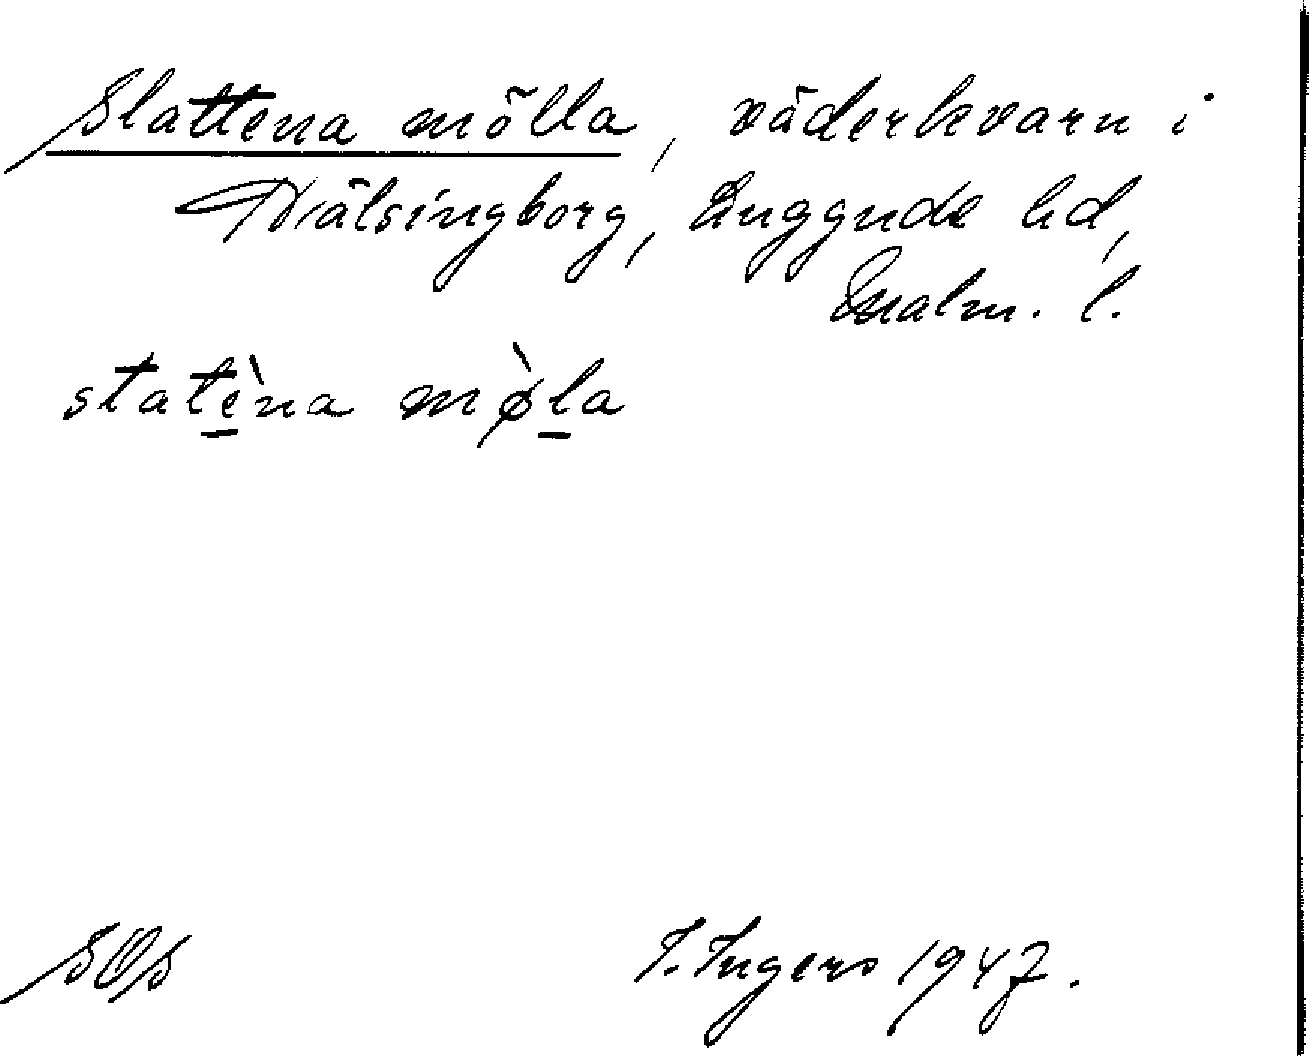 Slattena mölla, väderkvarn i
Hälsingborg, Luggude hd,
Malm. l.
statèna mø̀la
SOS
I. Ingers 1947.